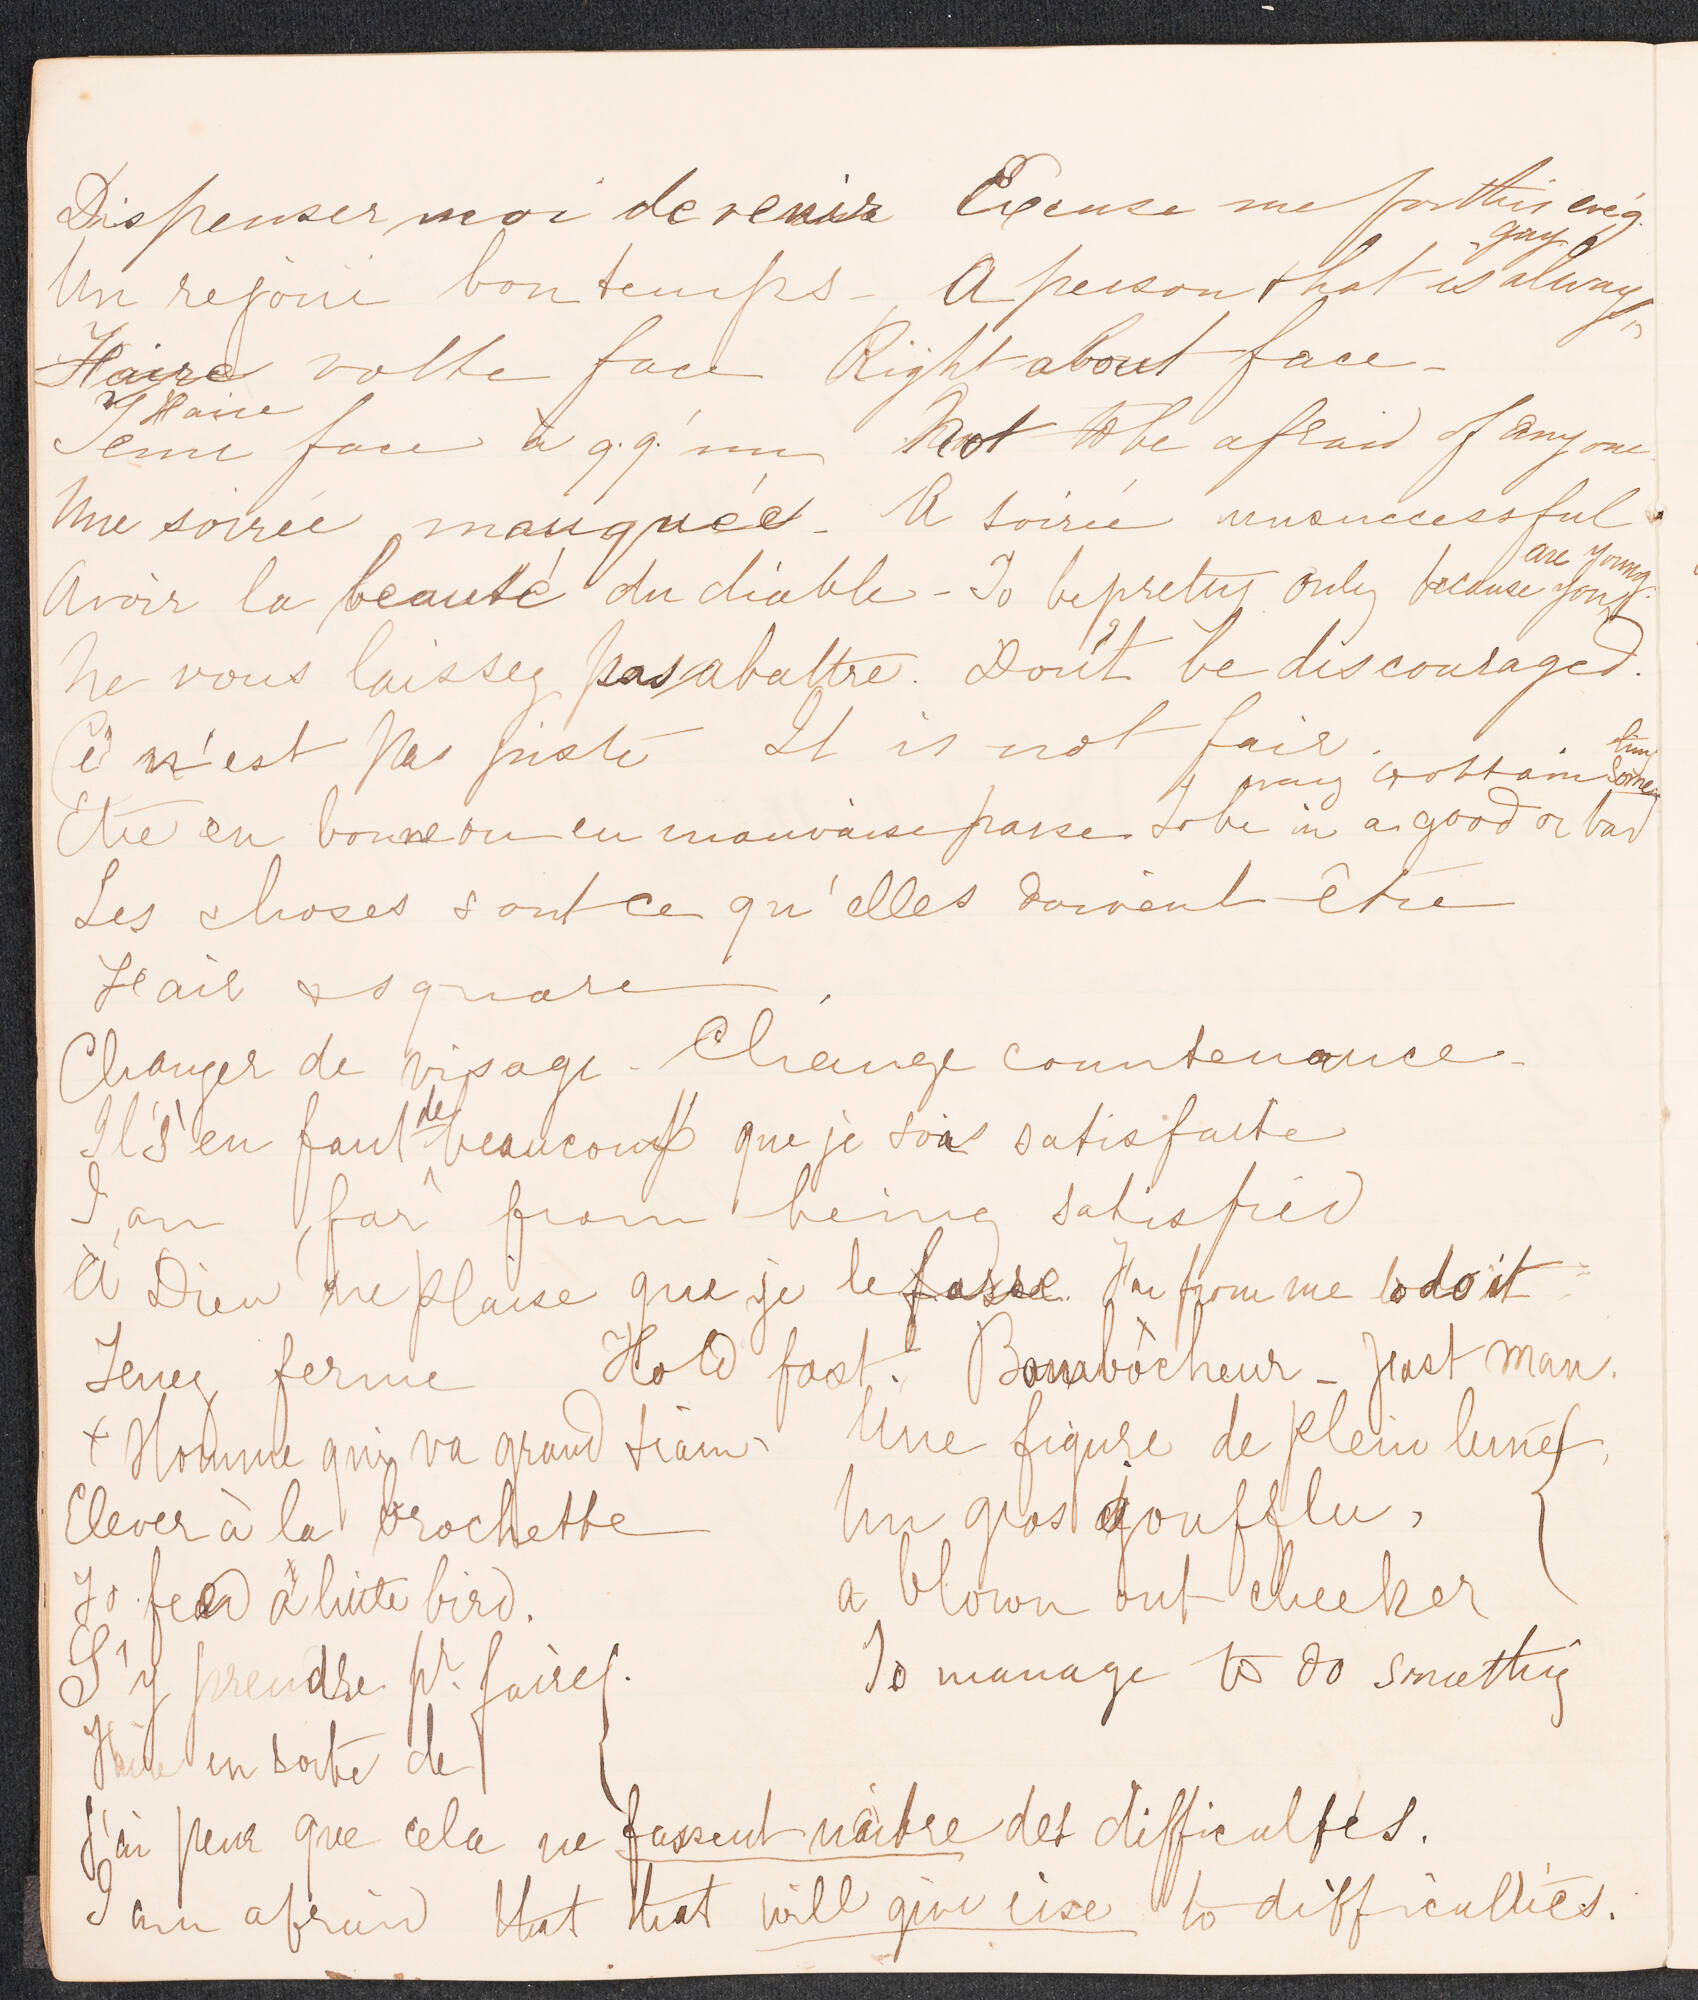 Dispenser moi de venir Excuse me for this eve'g.
Un rejoui bon temps - A person that is always gay
Faire volte face Right about face -
Faire
Tenir face à q.q.'un Not to be afraid of any one.
Une soirée manquée - A soirée unsuccessful.
Avoir la beauté du diable - To be pretty only because you are young.
Ne vous laissez pas abattre. Don't be discouraged.
Ce n'est pas juste It is not fair.
way to obtain some thing
Etre en bonne ou en mauvaise passe. To be in a good or bad
Les choses sont ce qu'elles doivent être
Fair & square
Changer de visage - Change countenance -
Il s'en faut de beaucoup que je sois satisfaite
I am far from being satisfied
À Dieu ne plaise que je le fasse. Far from me to do it -
Tenez ferme Hold fast. Bambôcheur - fast man.
+ Homme qui va grand train. Une figure de plein lune
Elever à la brochette Un gros joufflu,
To feed a little bird. a blown out cheeker
S'y prendre pr. faire To manage to do something
Faire en sorte de
J'ai peur que cela ne fassent naître des difficultés.
I am afraid that that will give rise to difficulties.